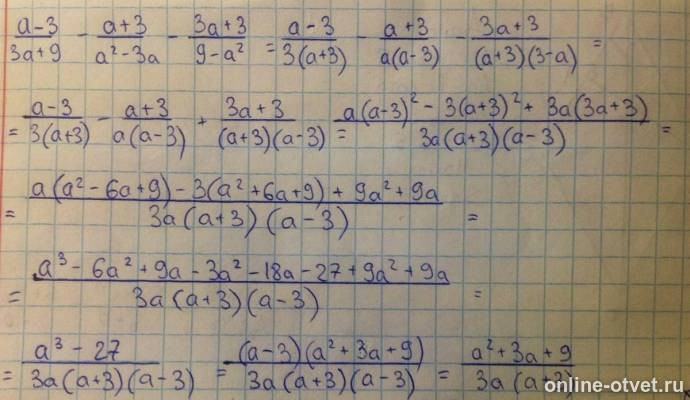 (a-3)/(3a+9) - (a+3)/(a²-3a) - (3a+3)/(9-a²) = (a-3)/(3(a+3)) - (a+3)/(a(a-3)) - (3a+3)/((a+3)(3-a)) =
= (a-3)/(3(a+3)) - (a+3)/(a(a-3)) + (3a+3)/((a+3)(a-3)) = (a(a-3)² - 3(a+3)² + 3a(3a+3))/(3a(a+3)(a-3)) =
= (a(a²-6a+9) - 3(a²+6a+9) + 9a²+9a)/(3a(a+3)(a-3)) =
= (a³-6a²+9a-3a²-18a-27+9a²+9a)/(3a(a+3)(a-3)) =
= (a³-27)/(3a(a+3)(a-3)) = ((a-3)(a²+3a+9))/(3a(a+3)(a-3)) = (a²+3a+9)/(3a(a+3))
online-otvet.ru